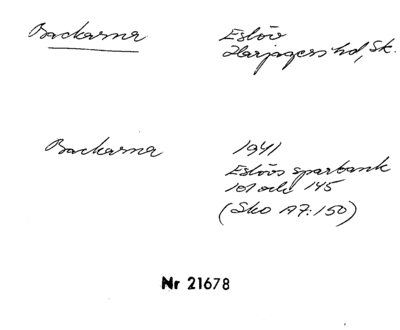 Backarna Eslöv
Harjagers hd, Sk.
Backarna 1941
Eslövs sparbank
101 och 145
(Sko A7:150)
Nr 21678